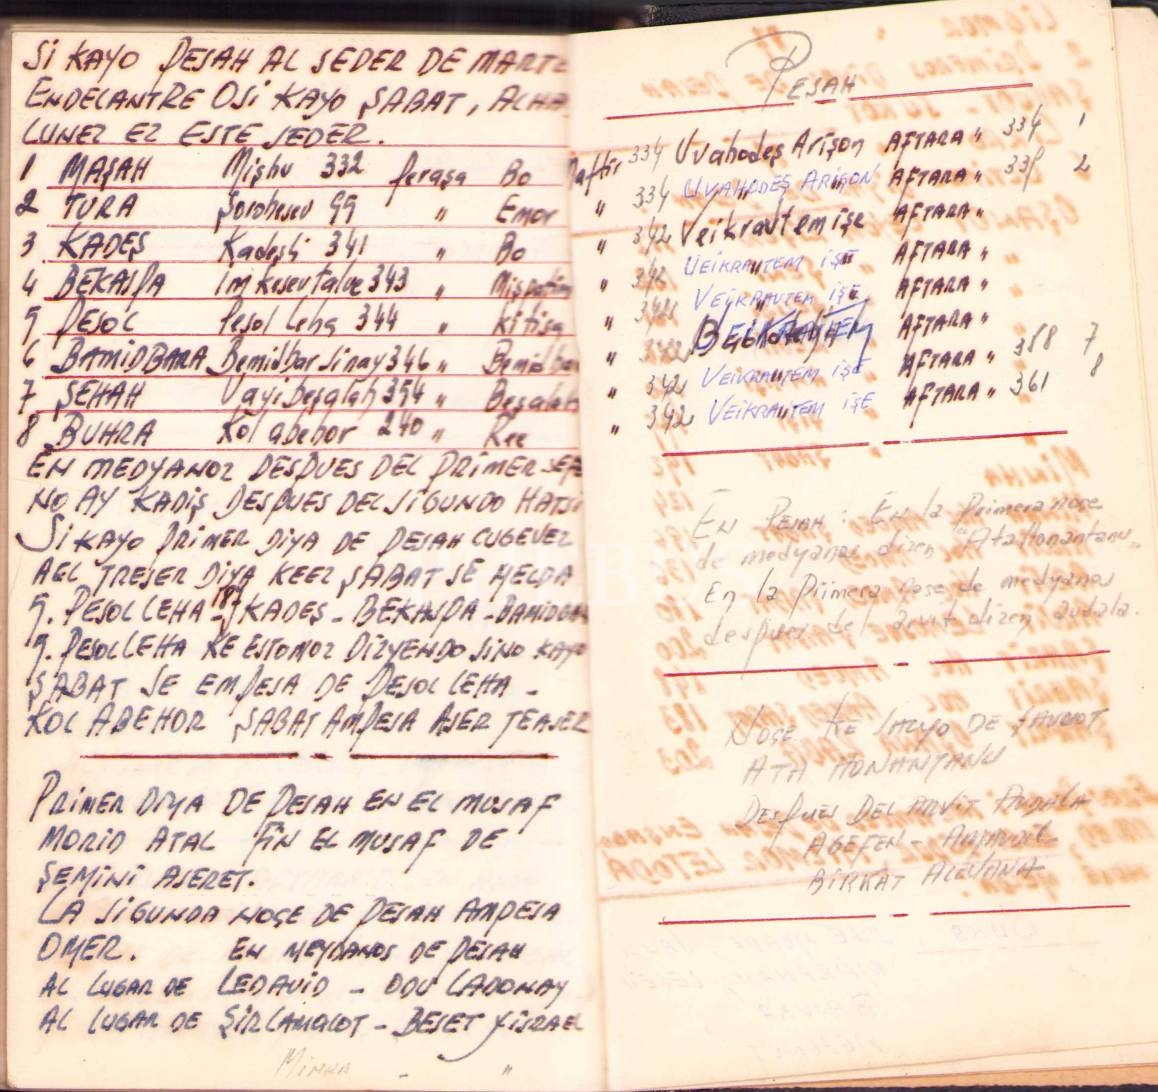 SI KAYO PESAH AL SEDER DE MARTE
ENDELANTRE OSI KAYO ŞABAT, ALHA
LUNEZ EZ ESTE SEDER.
1 MAŞAH Mişhu 332 peraşa Bo
2 TURA Şorohesev 99 " Emor
3 KADEŞ Kadeşli 341 " Bo
4 BEKASPA imkesevtalve 343 " Mişpatim
5 PESOL Pesol Leha 344 " kitisa
6 BAMIDBARA Bemidbar Sinay 346 " Bemidbar
7 ŞEHAH Vayi Beşalah 354 " Beşalah
8 BUHRA Kol abehor 240 " Ree
EN MEDYANOZ DESPUES DEL PRIMER SEFE
NO AY KADİŞ DESPUES DEL SIGUNDO HATSI
SI KAYO PRIMER DIYA DE PESAH CUGEVEZ
AEL TRESER DIYA KEEZ ŞABAT SE MELDA
5. PESOL LEHA - KADEŞ - BEKASPA - BAMIDBAR
5. PESOL LEHA KE ESTOMOZ DIZYENDO SINO KAYO
ŞABAT SE EMPESA DE PESOL LEHA -
KOL ABEHOR ŞABAT AMPESA ASER TEASER
PRIMER DIYA DE PESAH EN EL MUSAF
MORID ATAL FIN EL MUSAF DE
ŞEMINI ASERET.
LA SIGUNDA NOÇE DE PESAH AMPESA
OMER. EN MEYDANOS DE PESAH
AL LUGAR DE LEDAVID - ODU LADONAY
AL LUGAR DE ŞIRLAMALOT - BESET YISRAEL
MINHA - "
PESAH
Maftir 334 Uvahodeş Arişon AFTARA " 334 1
" 334 UVAHODEŞ ARIŞON AFTARA " 335 2
" 342 Veikravtem işe AFTARA "
" 342 VEIKRAVTEM IŞE AFTARA "
" 342 VEIKRAVTEM IŞE AFTARA "
" 342 AFTARA "
" 342 VEIKRAVTEM IŞE AFTARA " 358 7
" 342 VEIKRAVTEM IŞE AFTARA " 361 8
EN PESAH: En la Primera nose
de medyanos dizen "Ata Honantanu"
En la Primera nose de medyanos
despues del arvit dizen avdala.
NOÇE KE SALYO DE ŞAVUOT
ATA HONANTANU
DESPUES DEL ARVIT AVDALA
AGEFEN - AMAVDIL
BIRKAT ALEVANA